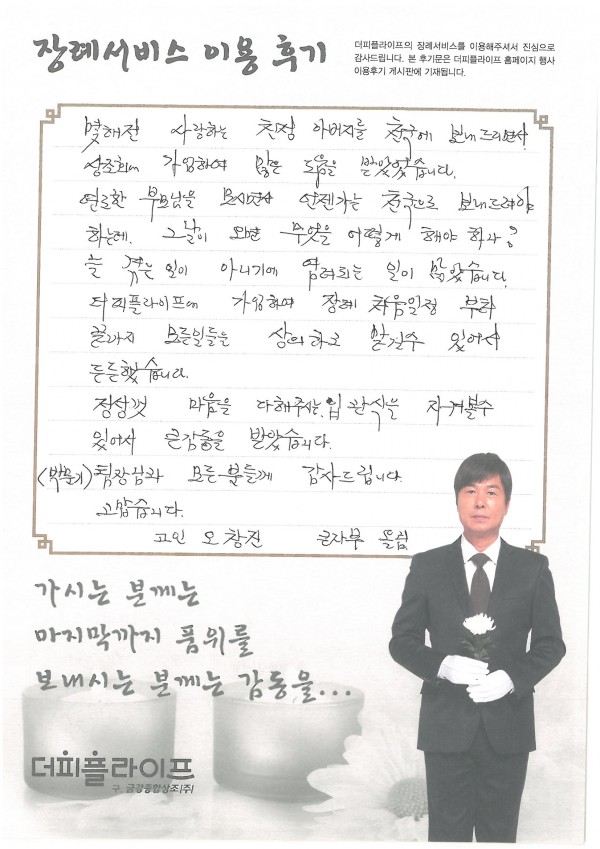 장례서비스 이용 후기
더피플라이프의 장례서비스를 이용해주셔서 진심으로
감사드립니다. 본 후기문은 더피플라이프 홈페이지 행사
이용후기 게시판에 기재됩니다.
몇해전 사랑하는 친정 아버지를 천국에 보내드리면서
상조회에 가입하여 많은 도움을 받았었습니다.
연로한 부모님을 모시면서 언젠가는 천국으로 보내드려야
하는데. 그날이 오면 무엇을 어떻게 해야 하나?
늘 겪은 일이 아니기에 염려되는 일이 많았습니다.
더피플라이프에 가입하여 장례 처음일정 부터
끝까지 모든일들을 상의하고 맡길수 있어서
든든했습니다.
정성껏 마음을 다해주시는 입관식을 지켜볼수
있어서 큰감동을 받았습니다.
팀장님과 모든분들께 감사드립니다.
고맙습니다.
고인 오창진 큰자부 올림
가시는 분께는
마지막까지 품위를
보내시는 분께는 감동을...
더피플라이프
구. 금강종합상조(주)